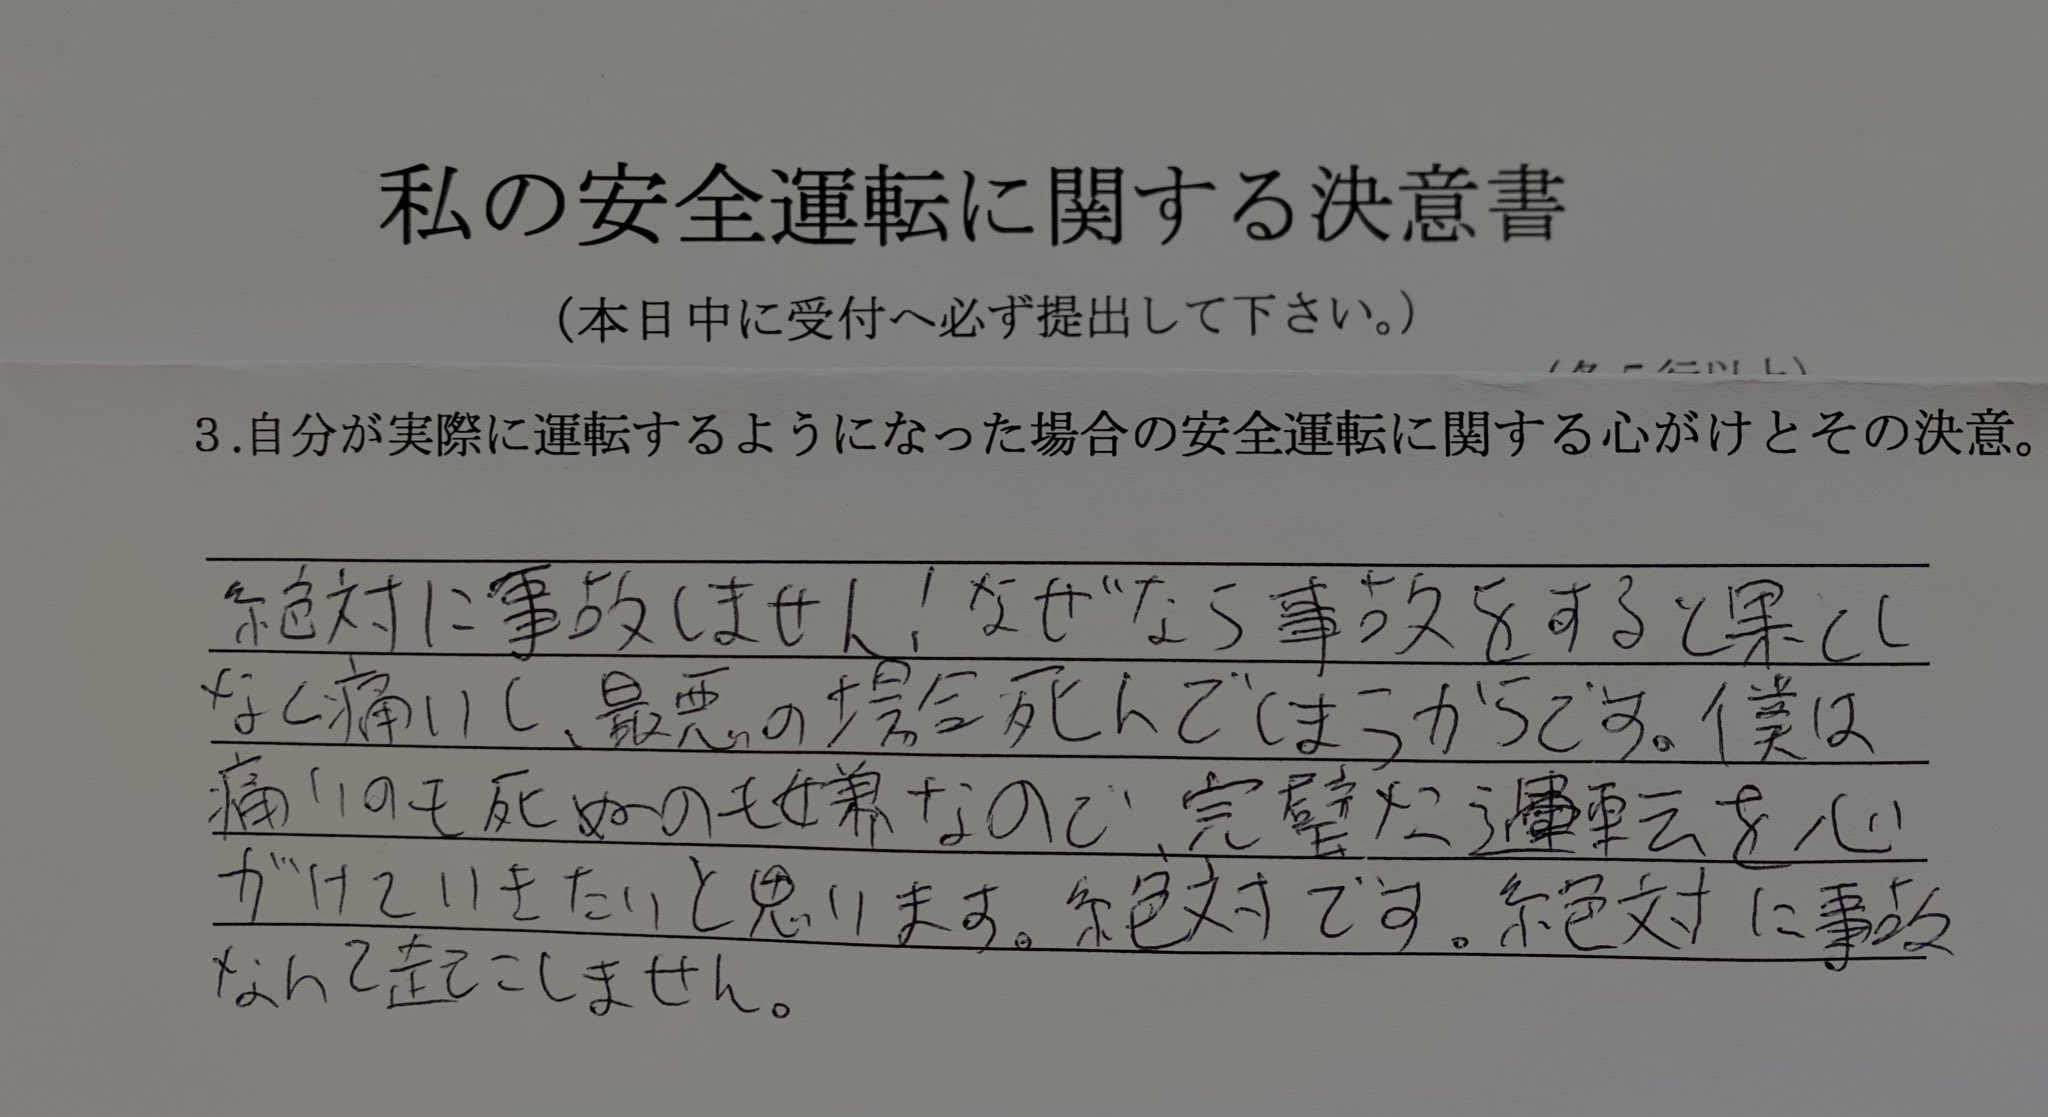 私の安全運転に関する決意書
(本日中に受付へ必ず提出して下さい。)
3.自分が実際に運転するようになった場合の安全運転に関する心がけとその決意。
絶対に事故しません!なぜなら事故をすると果てし
なく痛いし、最悪の場合死んでしまうからです。僕は
痛いのも死ぬのも嫌なので、完璧な運転を心
がけていきたいと思います。絶対です。絶対に事故
なんて起こしません。